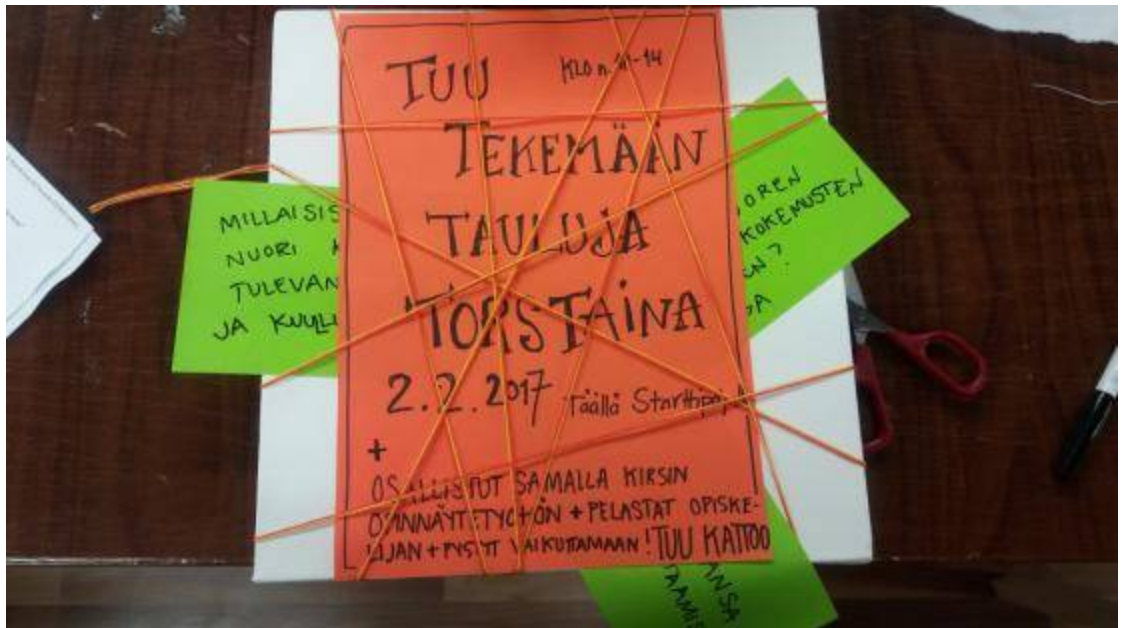 TUU KLO n. 11-14
TEKEMÄÄN
TAULUJA
TORSTAINA
2.2.2017 Täällä Starttipaja
+
OSALLISTUT SAMALLA KIRSIN
OPINNÄYTETYÖHÖN + PELASTAT OPISKE-
LIJAN + PYSTYT VAIKUTTAMAAN! TUU KATTOO
MILLAISIS
NUORI
TULEVAN
JA KUULL
OREN
KOKEMUSTEN
EN?
SA
ANSA
TAAMIS